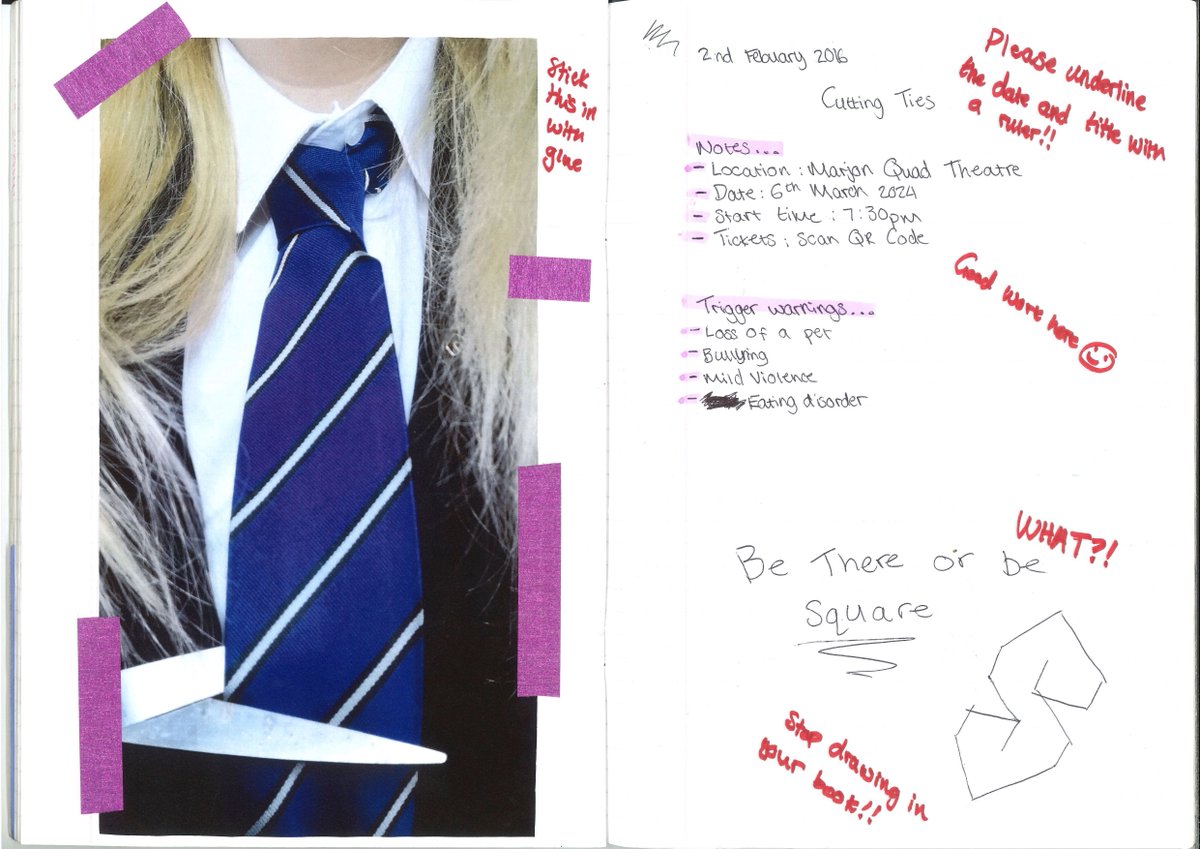 Stick
this in
with
glue
2nd Febuary 2016
Cutting Ties
Please underline
the date and title with
a ruler!!
Notes...
- Location : Marjon Quad Theatre
- Date : 6th March 2024
- Start time : 7:30pm
- Tickets : Scan QR Code
Good work here
Trigger warnings...
- Loss of a pet
- Bullying
- Mild Violence
- Eating disorder
WHAT?!
Be There or be
Square
Stop drawing in
your book!!